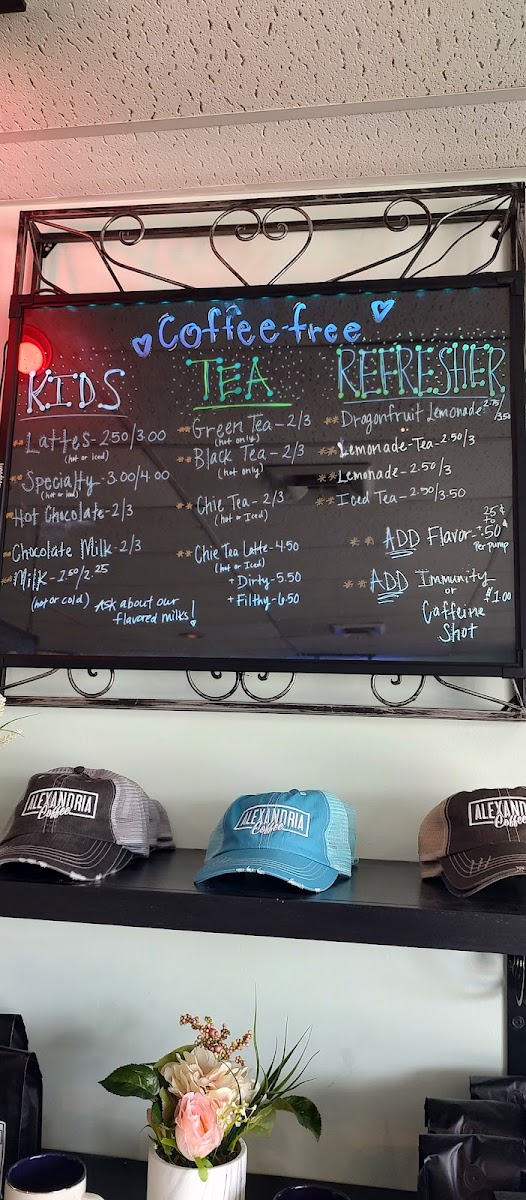 Coffee-free
KIDS
Lattes - 2.50/3.00
(hot or Iced)
Specialty - 3.00/4.00
(hot or Iced)
Hot Chocolate - 2/3
Chocolate Milk - 2/3
Milk - 1.50/2.25
(hot or cold)
Ask about our
flavored milks!
TEA
Green Tea - 2/3
(hot only)
Black Tea - 2/3
(hot only)
Chie Tea - 2/3
(hot or Iced)
Chie Tea Latte - 4.50
(hot or Iced)
+ Dirty - 5.50
+ Filthy - 6.50
REFRESHER
Dragonfruit Lemonade 2.75/3.50
Lemonade-Tea - 2.50/3
Lemonade - 2.50/3
Iced Tea - 2.50/3.50
ADD Flavor - 25¢ to .50
Per pump
ADD Immunity
or
Caffeine
Shot
$1.00
ALEXANDRIA
Coffee
ALEXANDRIA
Coffee
ALEXAND
Coffee